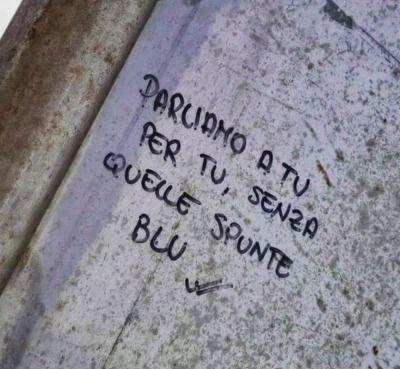 PARLIAMO A TU
PER TU, SENZA
QUELLE SPUNTE
BLU